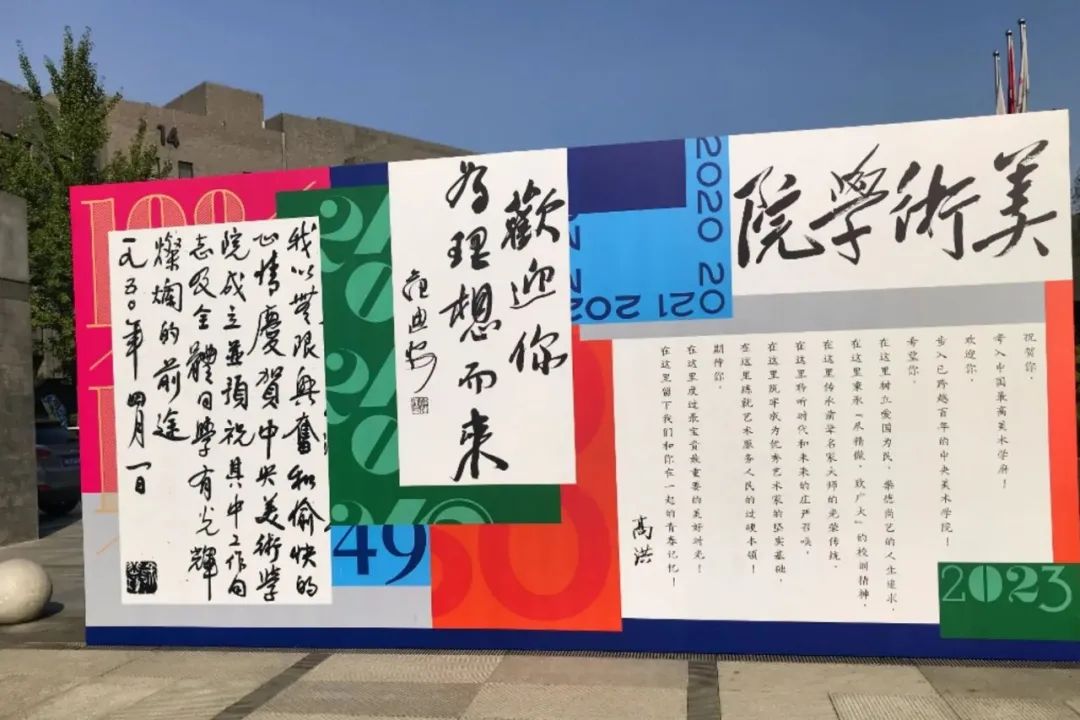 美術學院
祝贺你，
考入中国最高美术学府！
欢迎你，
步入已跨越百年的中央美术学院！
希望你，
在这里树立爱国为民、崇德尚艺的人生追求，
在这里秉承“尽精微，致广大”的校训精神，
在这里传承前辈名家大师的光荣传统，
在这里聆听时代和未来的庄严召唤，
在这里筑牢成为优秀艺术家的坚实基础，
在这里练就艺术服务人民的过硬本领！
期待你，
在这里度过最宝贵最重要的美好时光！
在这里留下我们和你在一起的青春记忆！
高洪
2023
2020 20
2021 202
歡迎你
为理想而来
范迪安
我以無限興奮和愉快的
心情慶賀中央美術學
院成立並預祝其中工作同
志及全體同學有光輝
燦爛的前途
一九五〇年四月一日
49
14